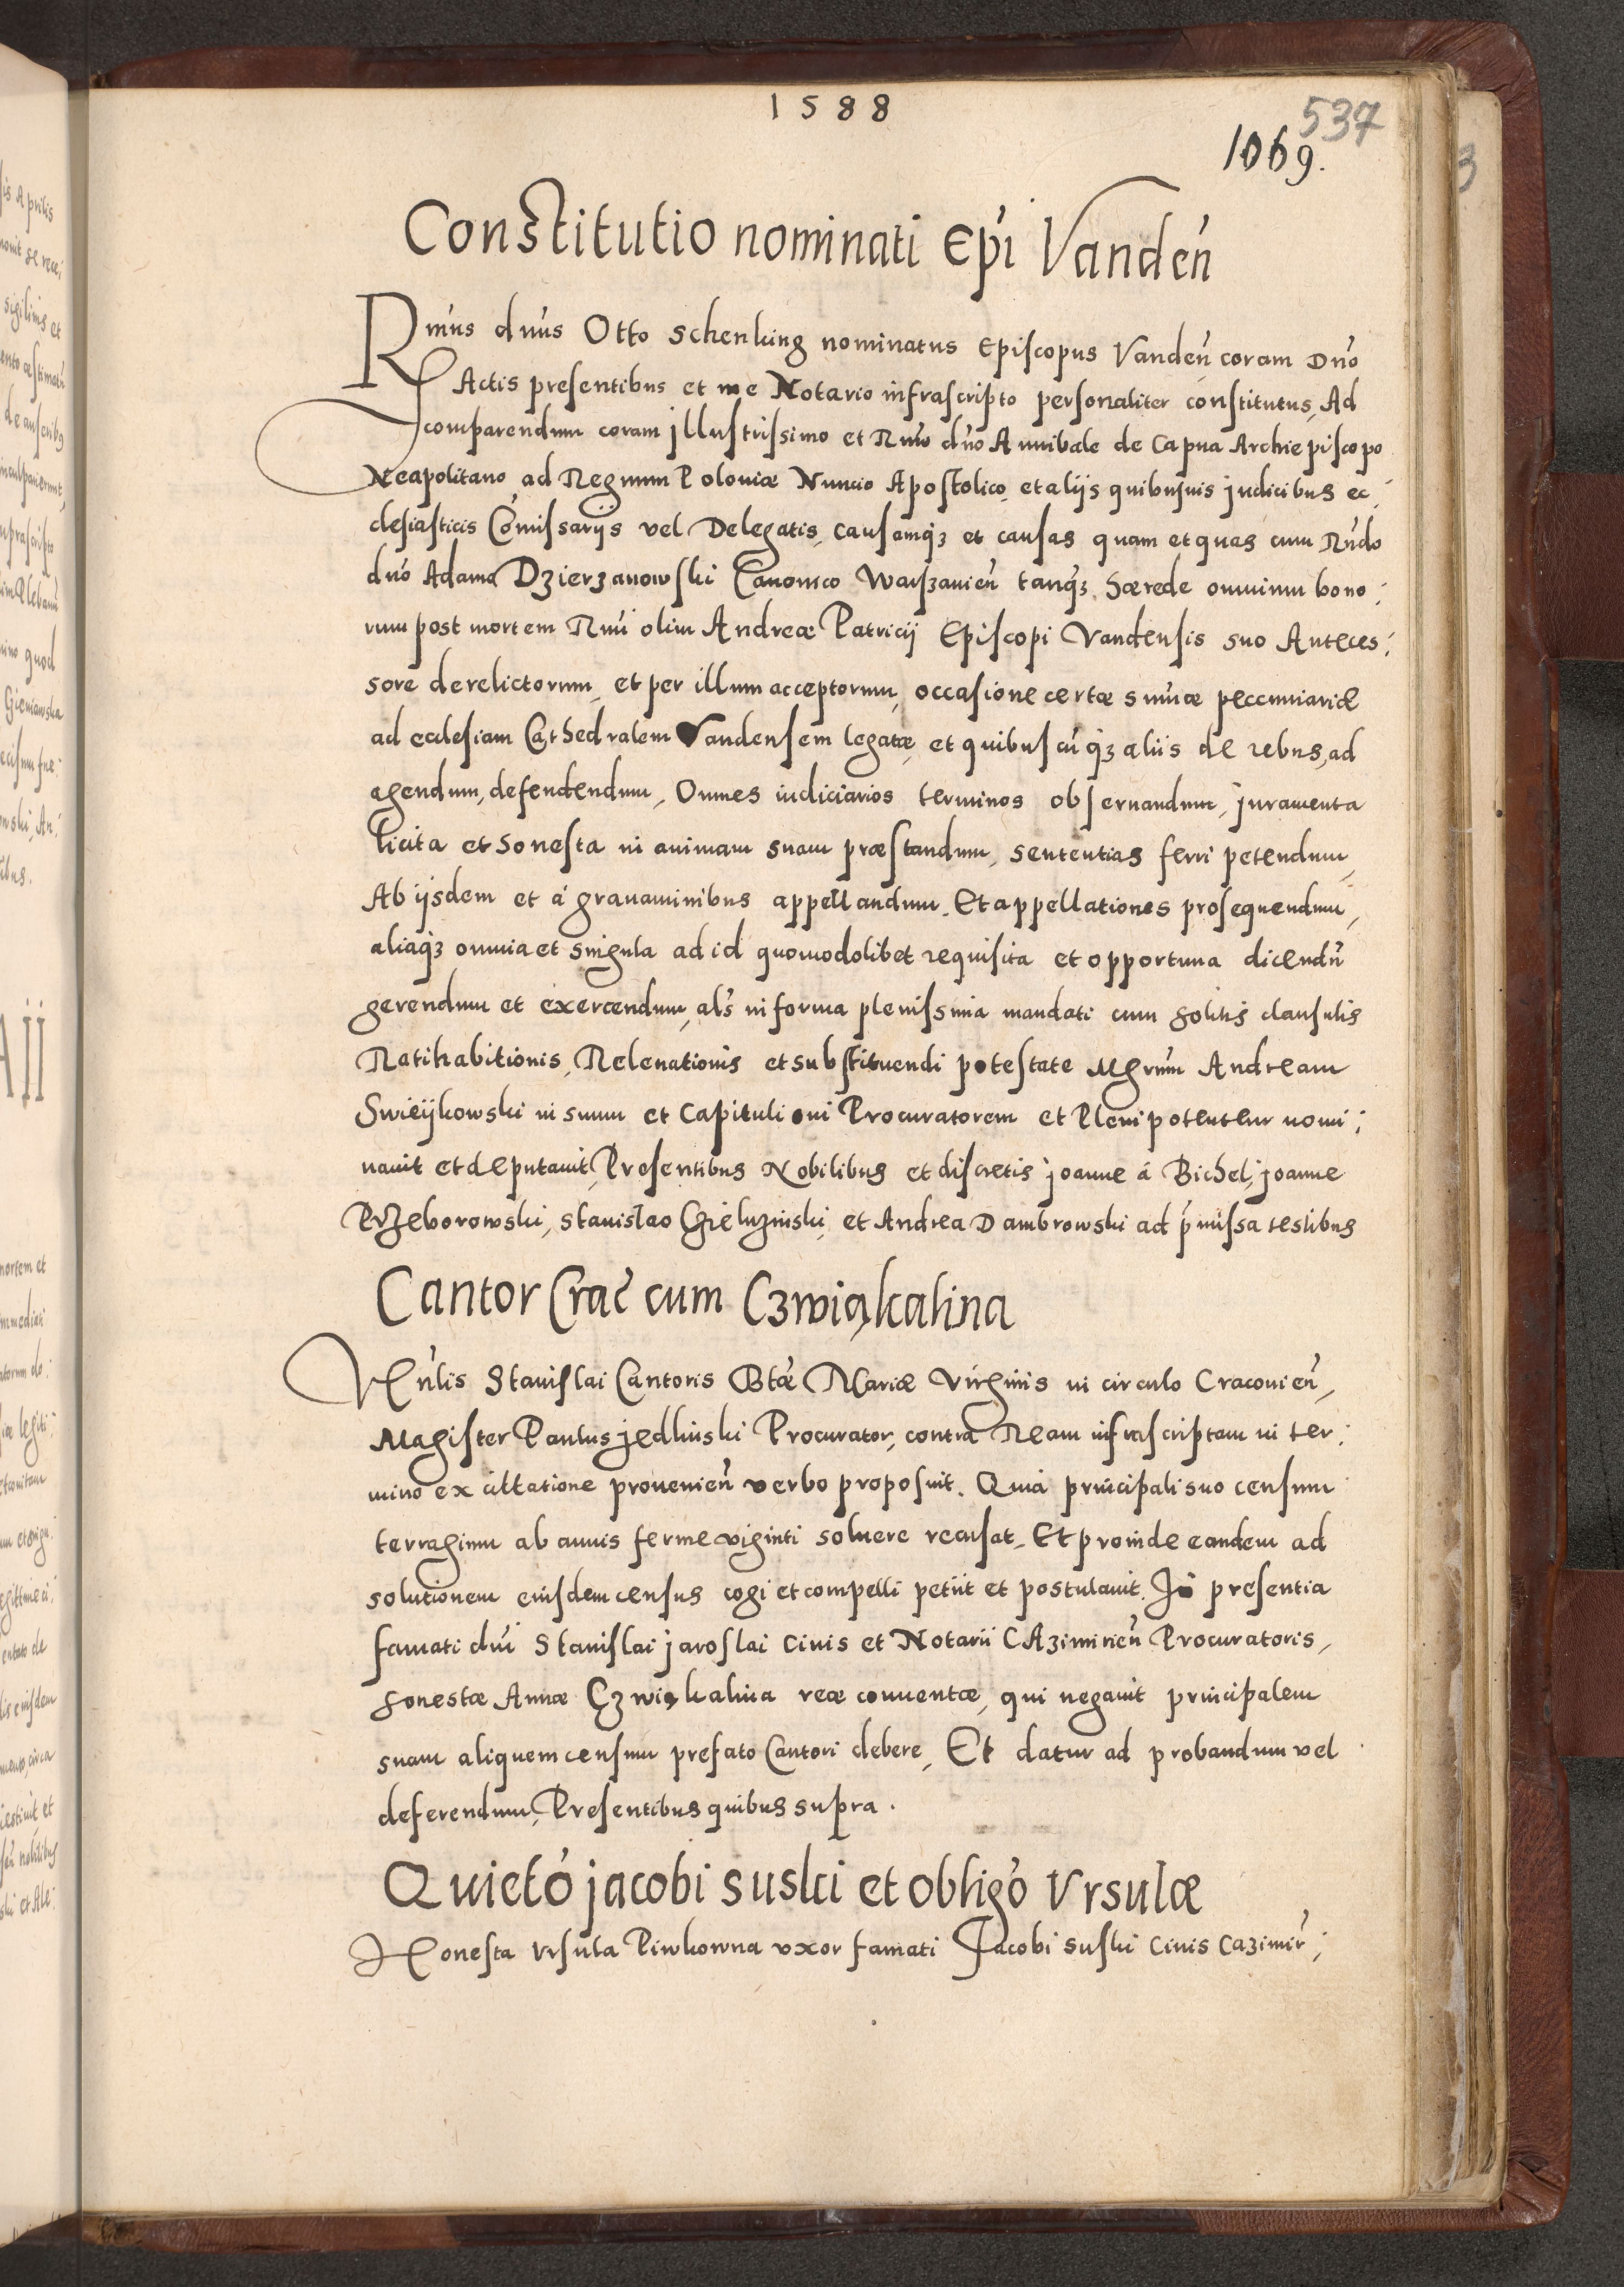 1588
537
1069.
Constitutio nominati Epi Vanden
Rmus dnus Otto Schenking nominatus Episcopus Vanden coram Dno
Actis presentibus et me Notario infrascripto personaliter constitutus, Ad
comparendum coram jllustrissimo et Rmo dno Annibale de Capua Archiepiscopo
Neapolitano ad Regnum Poloniæ Nuncio Apostolico, et alijs quibusuis judicibus ec¸
clesiasticis Comissarijs vel Delegatis, causamq3 et causas quam et quas cum Rndo
dno Adamo Dzierzanowski Canonico Warszauien tanq3 hærede omnium bono¸
rum post mortem Rmi olim Andreæ Patricij Episcopi Vandensis suo Anteces¸
sore derelictorum, et per illum acceptorum, occasione certæ sumæ peccuniariæ
ad ecclesiam Cathedralem Vandensem legatæ, et quibuscuq3 aliis de rebus, ad
agendum, defendendum, Omnes iudiciarios terminos obseruandum, juramenta
licita et honesta in animam suam præstandum, sententias ferri petendum,
Ab ijsdem et á grauaminibus appellandum. Et appellationes prosequendum,
aliaq3 omnia et singula ad id quomodolibet requisita et opportuna dicendu
gerendum et exercendum, als in forma plenissima mandati cum solitis clausulis
Ratihabitionis, Releuationis et substituendi potestate Mgrum Andream
Swieijkowski in suum et Capituli sui Procuratorem et Plenipotentem nomi¸
nauit et deputauit, Presentibus Nobilibus et discretis joanne á Bichel, joanne
Przeborowski, Stanislao Chieluzinski, et Andrea Dambrowski ad pmissa testibus
Cantor Crac cum Czwiąkalina
Vnlis Stanislai Cantoris Btæ Mariæ Virginis in circulo Cracouien,
Magister Paulus jedlinski Procurator, contra Ream infrascriptam in ter¸
mino ex cittatione prouenien verbo proposuit. Quia principali suo censum
terragium ab annis ferme viginti soluere recusat, Et proinde eandem ad
solutionem eiusdem census cogi et compelli petiit et postulauit. In presentia
famati dni Stanislai jaroslai Ciuis et Notarii CAzimirien Procuratoris,
honestæ Annæ Czwiąkalina reæ conuentæ, qui negauit principalem
suam aliquem censum prefato Cantori debere, Et datur ad probandum vel
deferendum, Presentibus quibus supra.
Quieto jacobi suski et obligo Vrsulæ
Honesta Vrsula Piwkowna vxor famati Jacobi suski Ciuis Cazimir¸